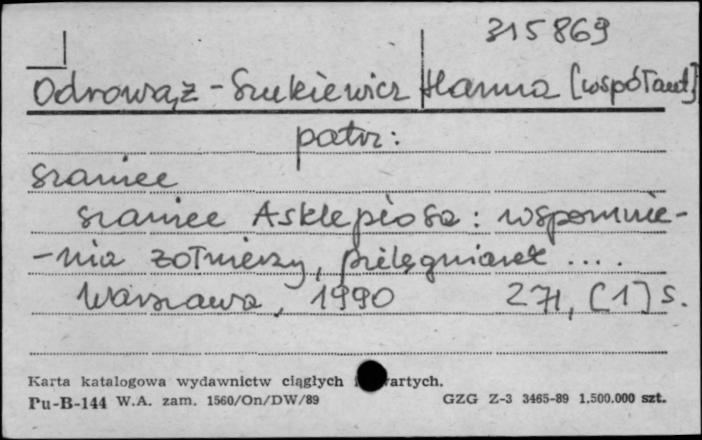 315869
Odrowąż-Szukiewicz Hanna [współaut]
patrz:
Szaniec
Szaniec Asklepiosa: wspomnie-
-nia żołnierzy, pielęgniarek ....
Warszawa, 1990 271, [1] s.
Karta katalogowa wydawnictw ciągłych i zwartych.
Pu-B-144 W.A. zam. 1560/On/DW/89 GZG Z-3 3465-89 1.500.000 szt.